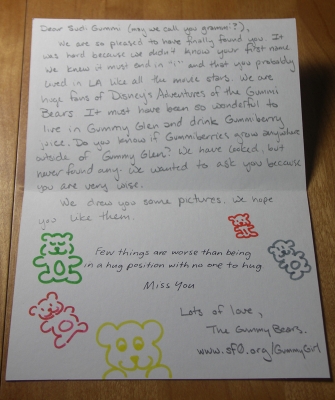 Dear Sudi Gummi (may we call you grammi?),
We are so pleased to have finally found you. It
was hard because we didn't know your first name.
We knew it must end in "i" and that you probably
lived in LA like all the movie stars. We are
huge fans of Disney's Adventures of the Gummi
Bears. It must have been so wonderful to
live in Gummy Glen and drink Gummiberry
juice. Do you know if Gummiberries grow anywhere
outside of Gummy Glen? We have looked, but
never found any. We wanted to ask you because
you are very wise.
We drew you some pictures. We hope
you like them.
Few things are worse than being
in a hug position with no one to hug
Miss You
Lots of love,
The Gummy Bears.
www.sf0.org/GummyGirl